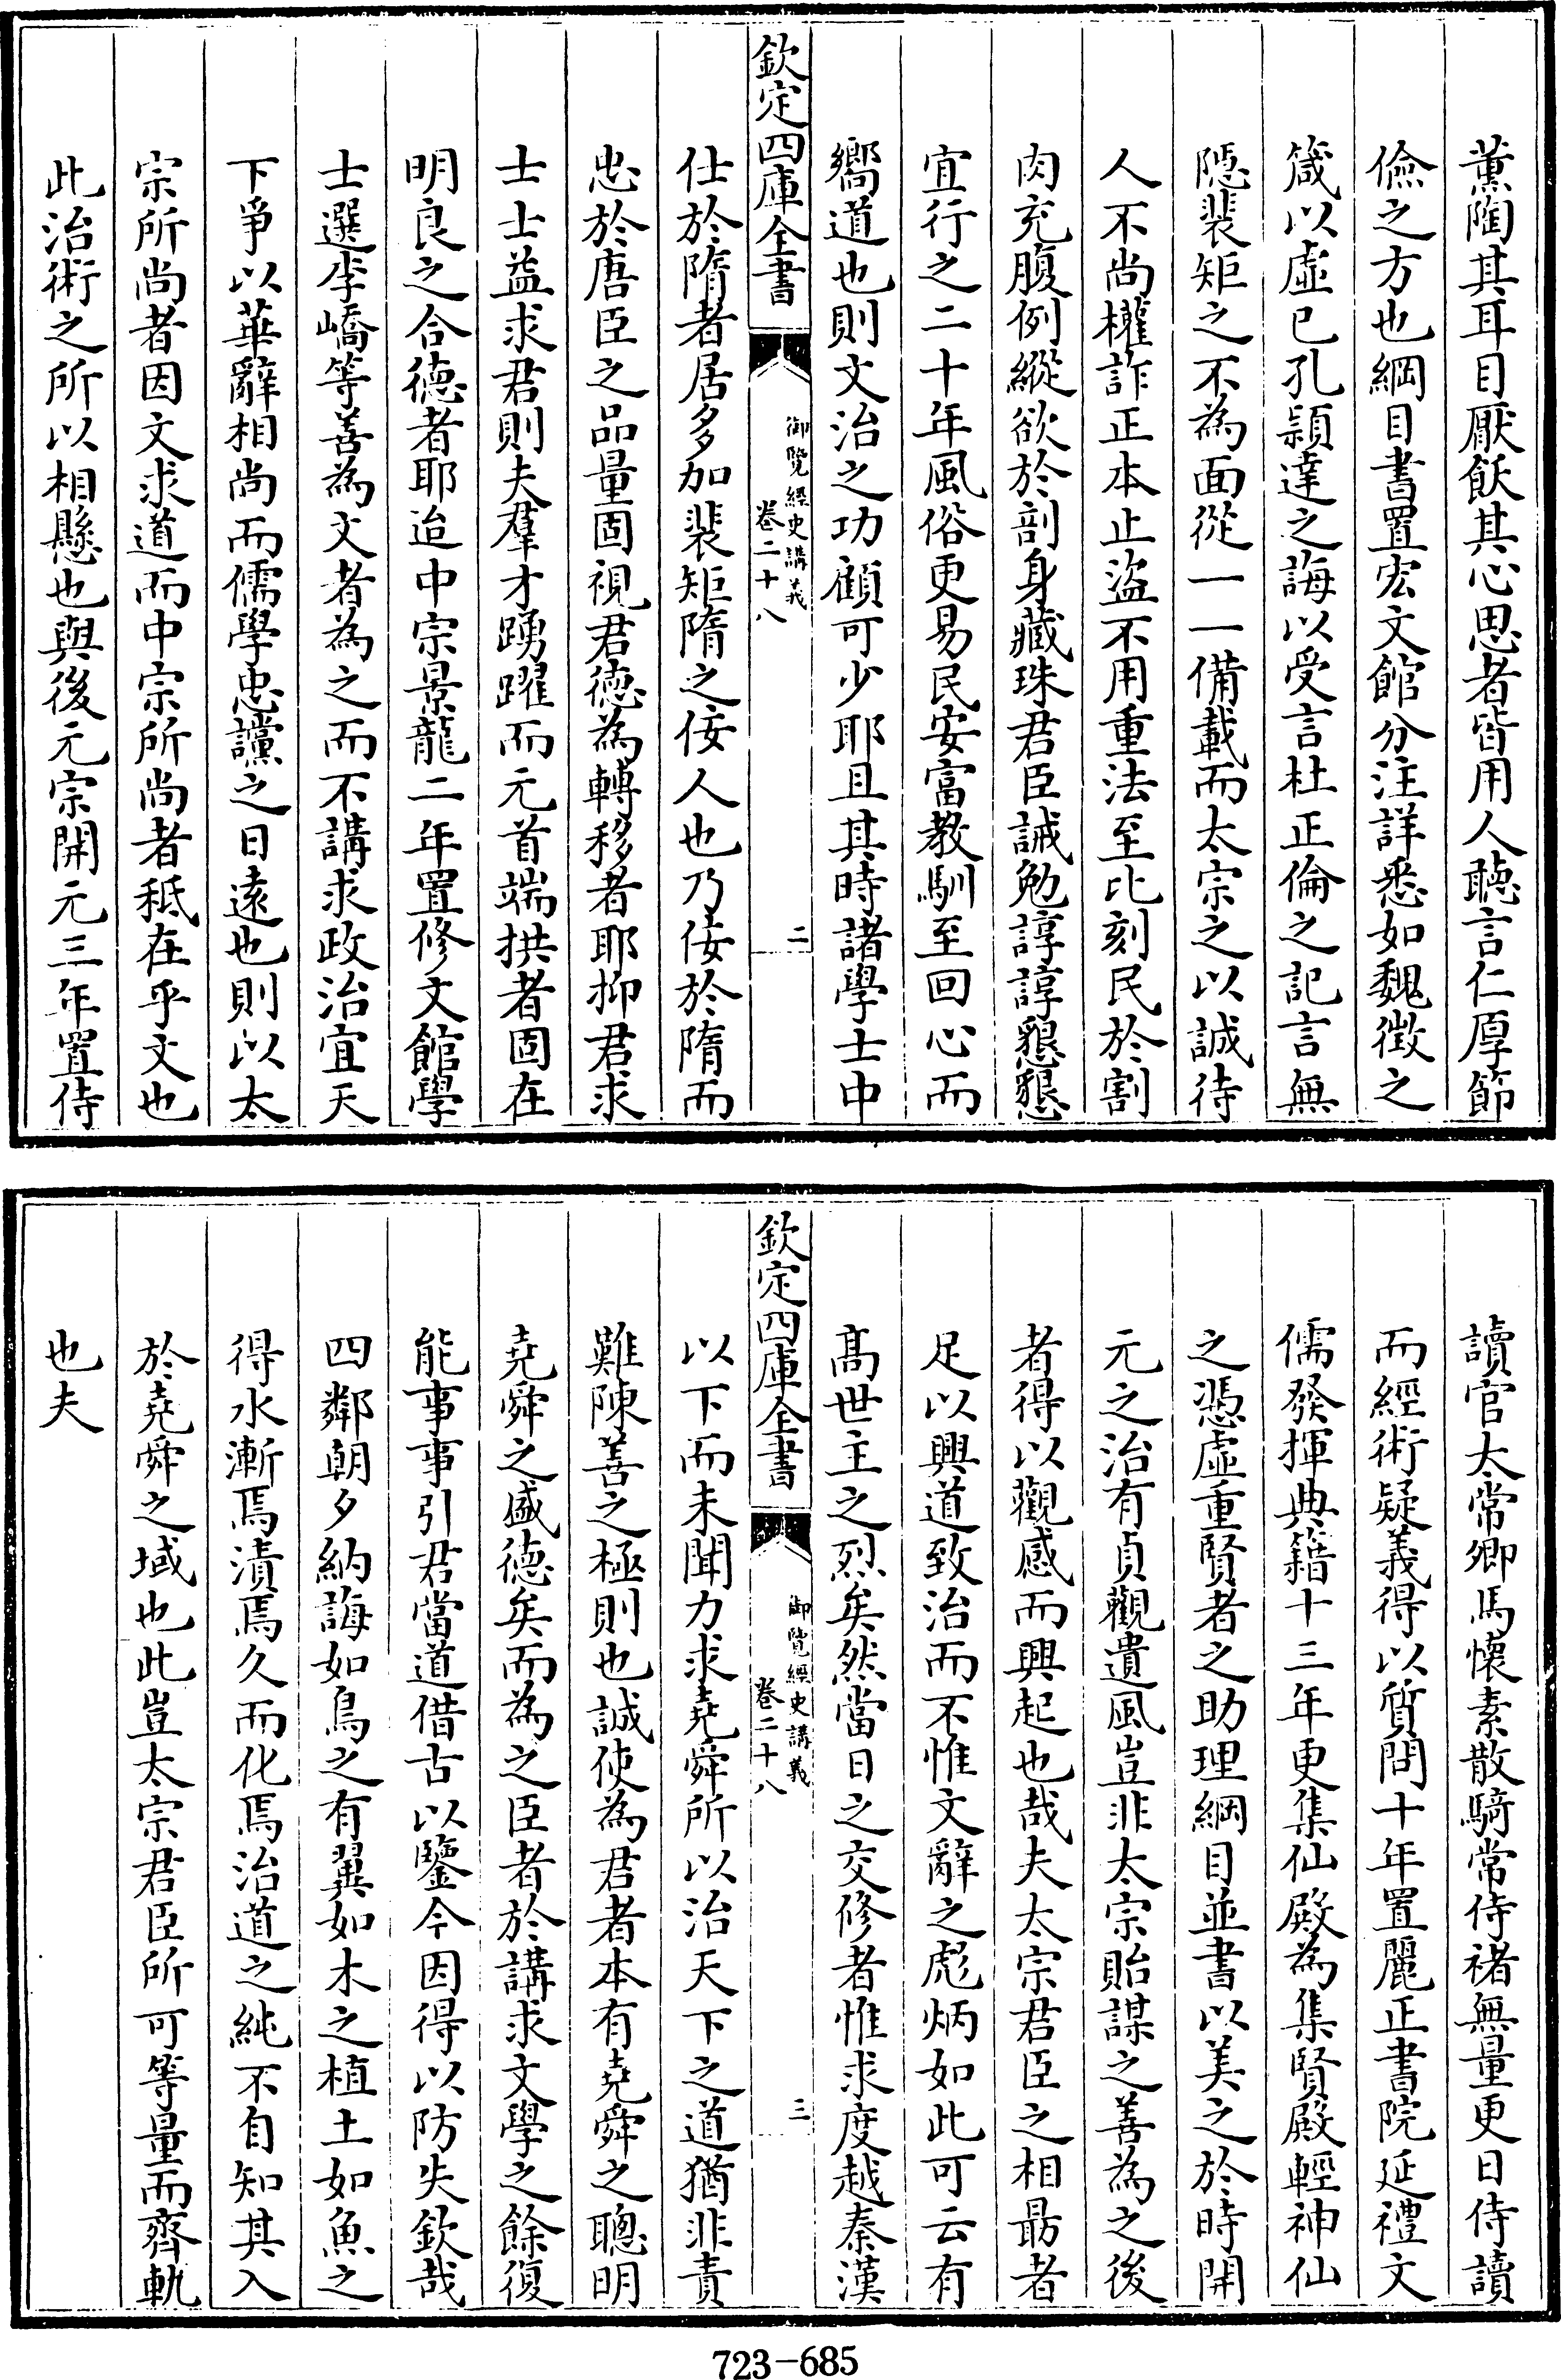 薰陶其耳目厭飫其心思者皆用人聽言仁厚節
儉之方也綱目書置宏文館分注詳悉如魏徴之
箴以虛已孔頴達之誨以受言杜正倫之記言無
隱裴矩之不為面從一一備載而太宗之以誠待
人不尚權詐正本止盗不用重法至比刻民於割
肉充腹例縱欲於剖身藏珠君臣誡勉諄諄懇懇
宜行之二十年風俗更易民安富教馴至回心而
嚮道也則文治之功顧可少耶且其時諸學士中
欽定四庫全書
御覽經史講義
卷二十八
二
仕於隋者居多加裴矩隋之佞人也乃佞於隋而
忠於唐臣之品量固視君德為轉移者耶抑君求
士士益求君則夫羣才踴躍而元首端拱者固在
明良之合德者耶迨中宗景龍二年置修文館學
士選李嶠等善為文者為之而不講求政治宜天
下爭以華辭相尚而儒學忠讜之日逺也則以太
宗所尚者因文求道而中宗所尚者秖在乎文也
此治術之所以相懸也與後元宗開元三年置侍
讀官太常卿馬懷素散騎常侍褚無量更日侍讀
而經術疑義得以質問十年置麗正書院延禮文
儒發揮典籍十三年更集仙殿為集賢殿輕神仙
之憑虛重賢者之助理綱目並書以美之於時開
元之治有貞觀遺風豈非太宗貽謀之善為之後
者得以觀感而興起也哉夫太宗君臣之相勗者
足以興道致治而不惟文辭之彪炳如此可云有
髙世主之烈矣然當日之交修者惟求度越秦漢
欽定四庫全書
御覽經史講義
卷二十八
三
以下而未聞力求堯舜所以治天下之道猶非責
難陳善之極則也誠使為君者本有堯舜之聰明
堯舜之盛德矣而為之臣者於講求文學之餘復
能事事引君當道借古以鑒今因得以防失欽哉
四鄰朝夕納誨如鳥之有翼如木之植土如魚之
得水漸焉漬焉久而化焉治道之純不自知其入
於堯舜之域也此豈太宗君臣所可等量而齊軌
也夫
723-685